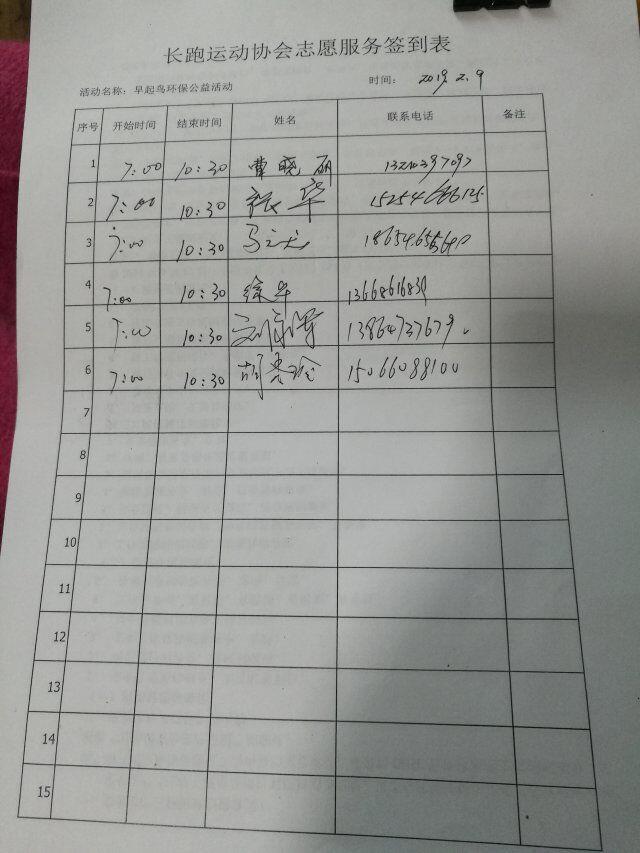 长跑运动协会志愿服务签到表
活动名称：早起鸟环保公益活动 时间： 2019.2.9
序号 开始时间 结束时间 姓名 联系电话 备注
1 7:00 10:30 曹晓丽
2 7:00 10:30 张华
3 7:00 10:30
4 7:00 10:30 徐华
5 7:00 10:30 13864737679
6 7:00 10:30 15066088100
7
8
9
10
11
12
13
14
15